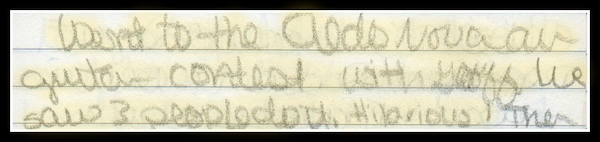 Went to the Aldo Nova air
guitar contest with We
saw 3 people do it. Hilarious! Then